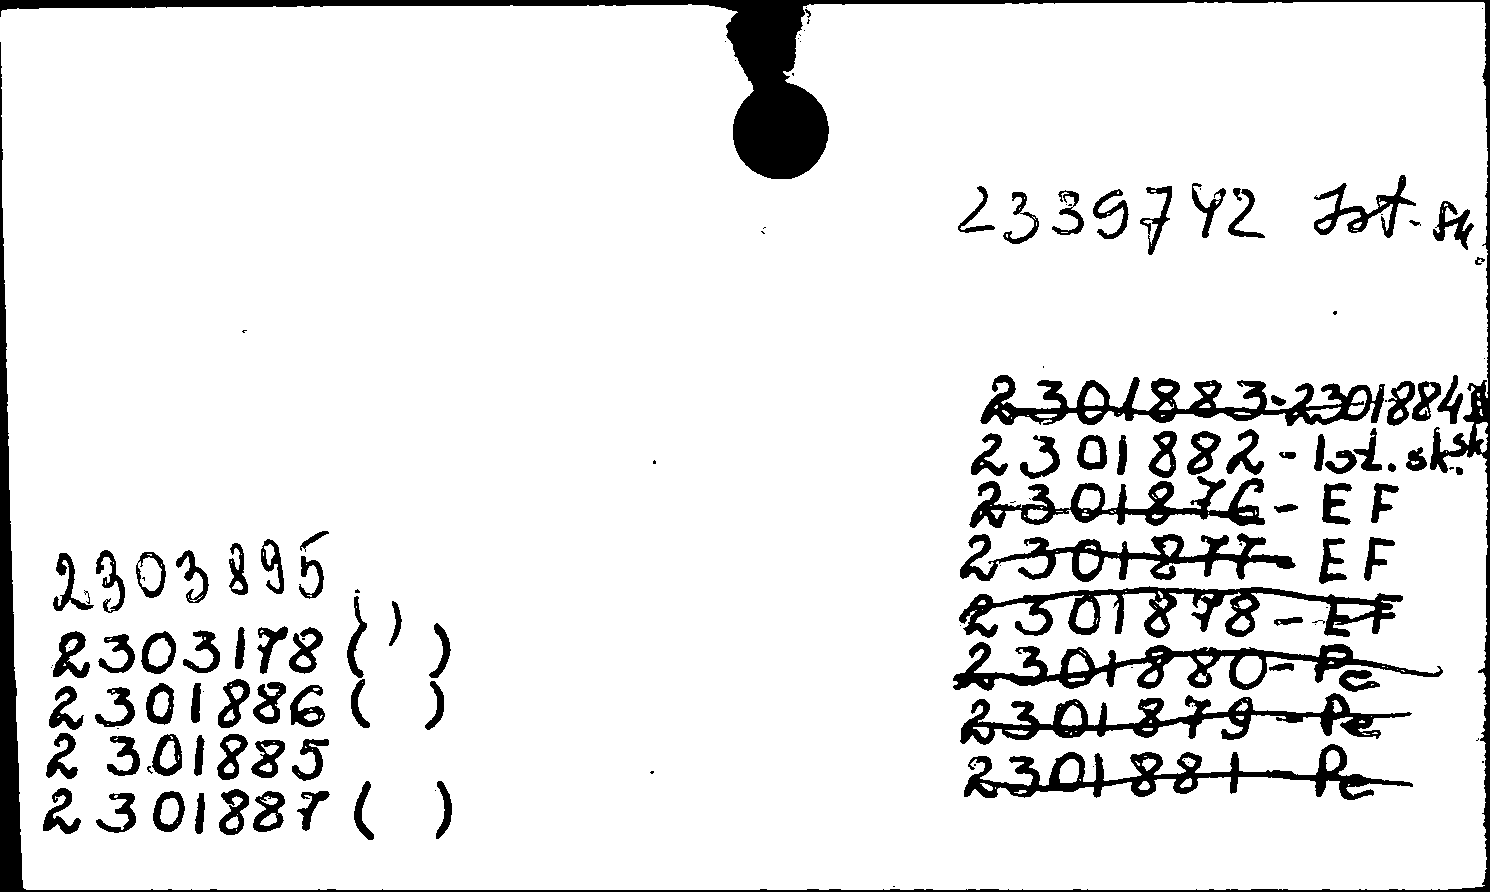 2339742 Ist. sk.
2301883-2301884
2301882-Ist. sk. sk
2301876-EF
2301877-EF
2301878-EF
2301880-Pe
2301879-Pe
2301881-Pe
2303895
2303178 ( ' ) )
2301886 ( )
2301885
2301887 ( )